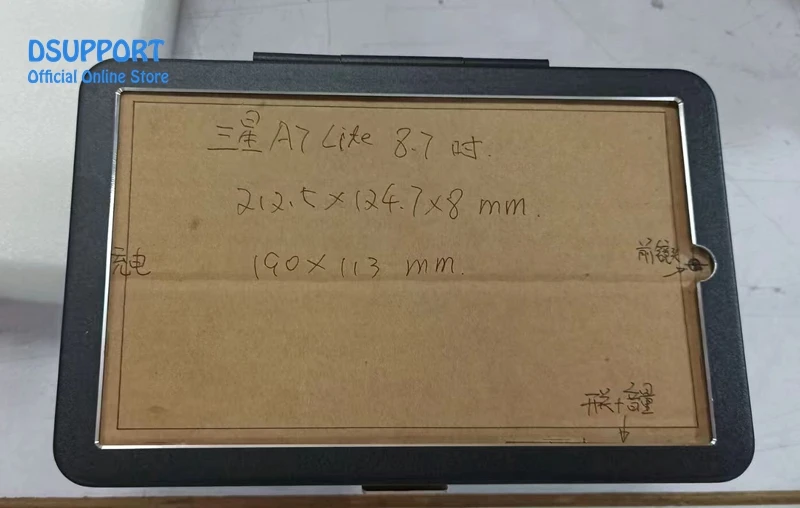 DSUPPORT
Official Online Store
三星 A7 Lite 8.7 吋.
212.5×124.7×8 mm.
充电
190×113 mm.
前镜头
开关+音量